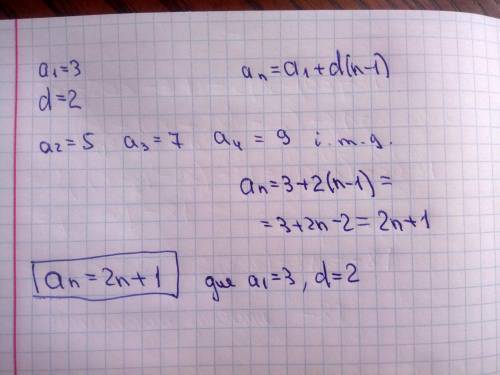 a₁=3
aₙ=a₁+d(n-1)
d=2
a₂=5 a₃=7 a₄=9 і.т.д.
aₙ=3+2(n-1)=
=3+2n-2=2n+1
aₙ=2n+1 для a₁=3, d=2